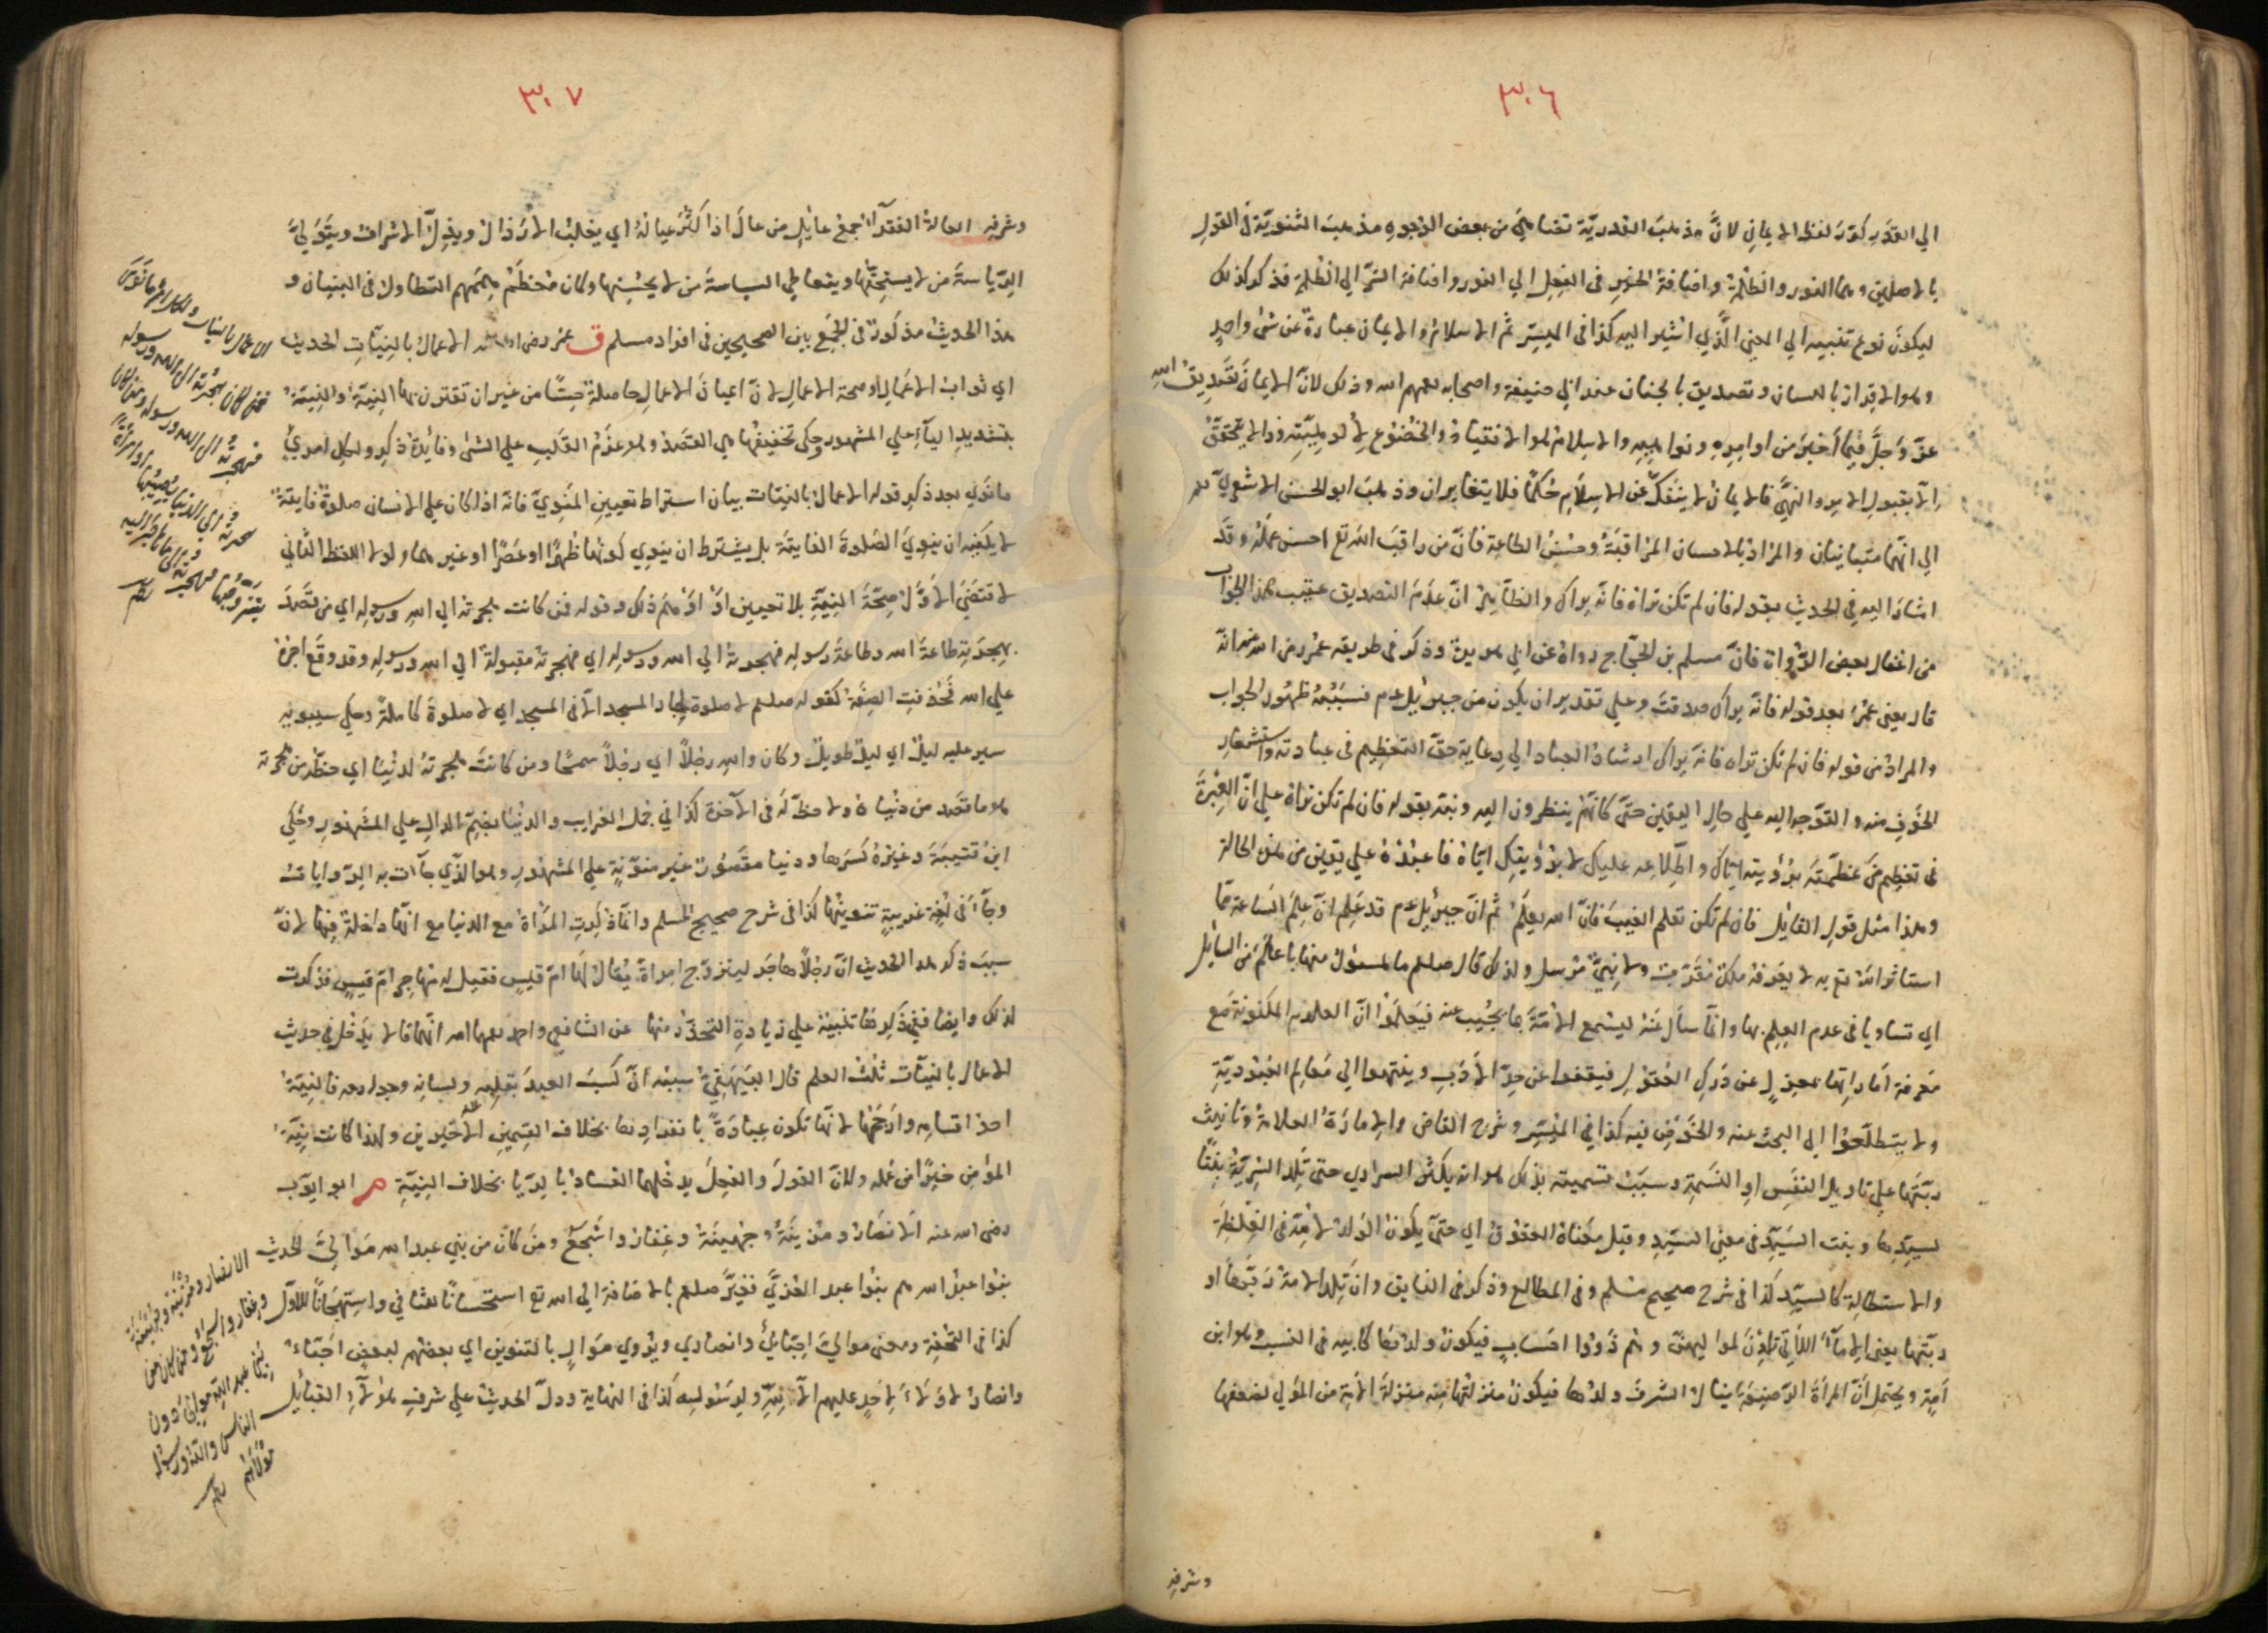 ٣٠٦
الي القدر كرّر لفظ الايمان لانّ مذهب القدريّة تضاهي من بعض الوجوه مذهب الثنويّة في القول
بالاصلين وهما النور والظلمة واضافة الخير في الفعل الي النور واضافة الشرّ الي الظلمة فذكر كذلك
ليكون نوع تنبيه الي المعني الّذي اشير اليه كذا في الميسّر ثم الاسلام والايمان عبارة عن شئ واحد
وهو الاقرار باللسان وتصديق بالجنان عند ابي حنيفة واصحابه رحمهم الله وذلك لانّ الايمان تصديق الله
عزّ وجلّ فيما اخبر من اوامره ونواهيه والاسلام هو الانقياد والخضوع لالوهيّته وذا لا يتحقّق
الّا بقبول الامر والنهي فالايمان لا ينفكّ عن الاسلام حُكمًا فلا يتغايران وذهب ابو الحسن الاشعري رحمه
الي انّهما متباينان والمراد بالاحسان المراقبة وحسن الطاعة فانّ من راقب الله تع احسن عمله وقد
اشار اليه في الحديث بقوله فان لم تكن تراه فانّه يراك والظاهر انّ عدم التصديق عقيب هذا الجواب
من اغفال بعض الرّواة فانّ مسلم بن الحجّاج رواه عن ابي هريرة وذكر في طريقه عمر رض الله عنه انّه
قال يعني عمر بعد قوله فانّه يراك صدقت وعلي تقدير ان يكون من جبرئيل عم فسببه ظهور الجواب
والمراد من قوله فان لم تكن تراه فانّه يراك ارشاد العباد الي رعاية حقّ التعظيم في عبادته واستشعار
الخوف منه والتوجه اليه علي حال اليقين حتّي كانّهم ينظرون اليه ونبّه بقوله فان لم تكن تراه علي انّ العبرة
في تعظيم من عظّمته برؤيته ايّاك واطّلاعه عليك لا برؤيتك ايّاه فاعبده علي يقين من هذه الحالة
وهذا مثل قول القائل فان لم تكن تعلم الغيب فانّ الله يعلم ثم انّ جبرئيل عم قد علم انّ علم الساعة ممّا
استاثر الله تع به لا يعرفه ملك مقرّب ولا نبيّ مرسل ولذلك قال صلعم ما المسؤل عنها باعلم من السائل
اي تساويا في عدم العلم بها وانّما سأل عنه ليسمع الامّة بما يجيب عنه فيعلموا انّ العلوم المكنونة مع
معرفة اماراتها بمعزل عن درك العقول فيقفوا عن حدّ الادب وينتهوا الي معالم العبوديّة
ولا يتطلّعوا الي البحث عنه والخوض فيه كذا في الميسّر وشرح القاض والامارة العلامة وتانيث
ربّتها علي تاويل النفس او النسمة وسبب تسميته بذلك هو انه يكثر السراري حتي تلد السريّة بنتًا
لسيّدها وبنت السيّد في معني السيّد وقيل معناه العقوق اي حتّي يكون الولد لامّه في الغلظة
والاستطالة كالسيّد كذا في شرح صحيح مسلم وفي المطالع وذكر في الفايق وان تلد الامة ربّها او
ربّتها يعني الاماء اللاتي تلدن لمواليهنّ وهم ذووا احساب فيكون ولدها كابيه في النسب وهو ابن
امة ويحتمل انّ المرأة الوضيعة ينال الشرف ولدها فيكون منزلتها منه منزلة الامة من المولي لضعفها
وشرفه
٣٠٧
وشرفه العالة الفقرآء جمع عايل من عال اذا كثر عياله اي يغلب الارذال ويذلّ الاشراف ويتولّي
الرّياسة من لا يستحقّها ويتعاطي السياسة من لا يحسنها وكان معظم هممهم التطاول في البنيان و
هذا الحديث مذكور في الجمع بين الصحيحين في افراد مسلم ق عمر رض الله عنه الاعمال بالنيّات الحديث
اي ثواب الاعمال او صحة الاعمال لانّ اعيان الاعمال حاصلة حسًّا من غير ان تقترن بها النيّة والنيّة
بتشديد الياء علي المشهور وحكي تخفيفها هي القصد وهو عزم القلب علي الشئ وفائدة ذكر ولكل امرئ
ما نوي بعد ذكر قوله الاعمال بالنيّات بيان اشتراط تعيين المنويّ فانّه اذا كان علي الانسان صلوة فايتة
لا يكفيه ان ينوي الصّلوة الفايتة بل يشترط ان ينوي كونها ظهرًا او عصرًا او غيرهما ولولا اللفظ الثاني
لاقتضي الاوّل صحّة النيّة بلا تعيين او اوهم ذلك وقوله فمن كانت هجرته الي الله ورسوله اي من قصد
بهجرته طاعة الله وطاعة رسوله فهجرته الي الله ورسوله اي فهجرته مقبولة الي الله ورسوله وقد وقع اجره
علي الله فحذفت الصفة كقوله صلعم لا صلوة لجار المسجد الّا في المسجد اي لا صلوة كاملة وحكي سيبويه
سير عليه ليل اي ليل طويل وكان والله رجلًا اي رجلًا سمحًا ومن كانت هجرته لدنيا اي حظّه من هجرته
هو ما قصد من دنياه ولا حظّ له في الآخرة كذا في جمل الغرايب والدنيا بضمّ الدال علي المشهور وحكي
ابن قتيبة وغيره كسرها ودنيا مقصور غير منوّنة علي المشهور وهو الّذي جآءت به الرّوايات
وجآء في لغة غريبة تنوينها كذا في شرح صحيح المسلم وانّما ذكرت المرأة مع الدنيا مع انّها داخلة فيها لانّ
سبب ذكر هذا الحديث انّ رجلًا هاجر ليتزوّج امرأة يقال لها امّ قيس فقيل له مهاجر امّ قيس فذكرت
لذلك وايضا ففي ذكرها تنبيه علي زيادة التحذّر منها عن الشافعي واحمد رحمهما الله انّهما قالا يدخل في حديث
الاعمال بالنيّات ثلث العلم قال البيهقيّ سببه انّ كسب العبد بقلبه ولسانه وجوارحه فالنيّة
احد اقسامه وارجحها لانّها تكون عبادة بانفرادها بخلاف القسمين الاخيرين ولهذا كانت نيّة
المؤمن خيرًا من عمله ولانّ القول والفعل يدخلهما الفساد بالريا بخلاف النيّة م ابو ايّوب
رض الله عنه الانصار ومزينة وجهينة وغفار واشجع ومن كان من بني عبد الله موالي الحديث
بنوا عبد الله هم بنوا عبد العزّي فغيّر صلعم بالاضافة الي الله تع استحسانًا للثاني واستهجانًا للاوّل
كذا في التحفة ومعني موالي احبّائي وانصاري ويروي موالٍ بالتنوين اي بعضهم لبعض احبّاء
وانصار لا ولاء لاحد عليهم الّا لله ولرسوله كذا في النهاية ودلّ الحديث علي شرف هؤلاء القبائل
الاعمال بالنيات ولكل امرئ ما نوى
فمن كان هجرته الى الله ورسوله
فهجرته الى الله ورسوله ومن كان
هجرته الى الدنيا يصيبها او امرأة
يتزوجها فهجرته الى ما هاجر اليه
الانصار ومزينة وجهينة
وغفار واشجع ومن كان من
بني عبد الله موالي دون
الناس والله ورسوله
مولاهم